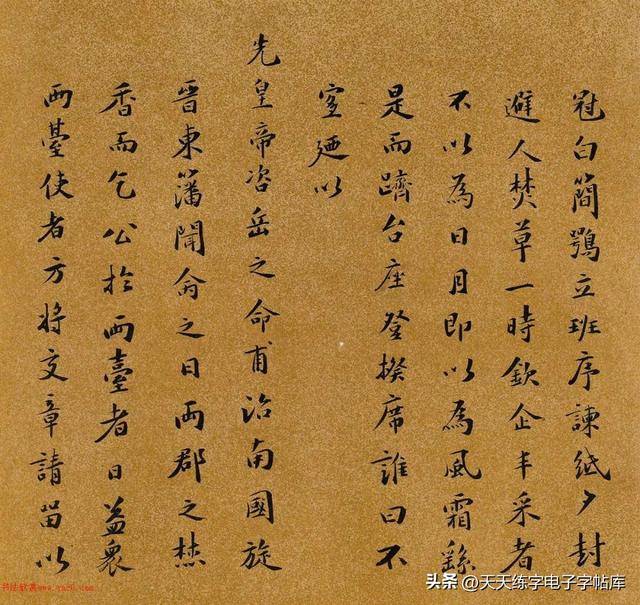 冠白簡鶚立班序諫紙夕封
避人焚草一時欽企丰采者
不以為日月即以為風霜繇
是而躋台座登揆席誰曰不
廼以
先皇帝咨岳之命甫治南國旋
晉東籓聞命之日兩郡之焚
香而乞公於兩臺者日益衆
兩臺使者方將交章請留以
头条 @天天练字电子字帖库